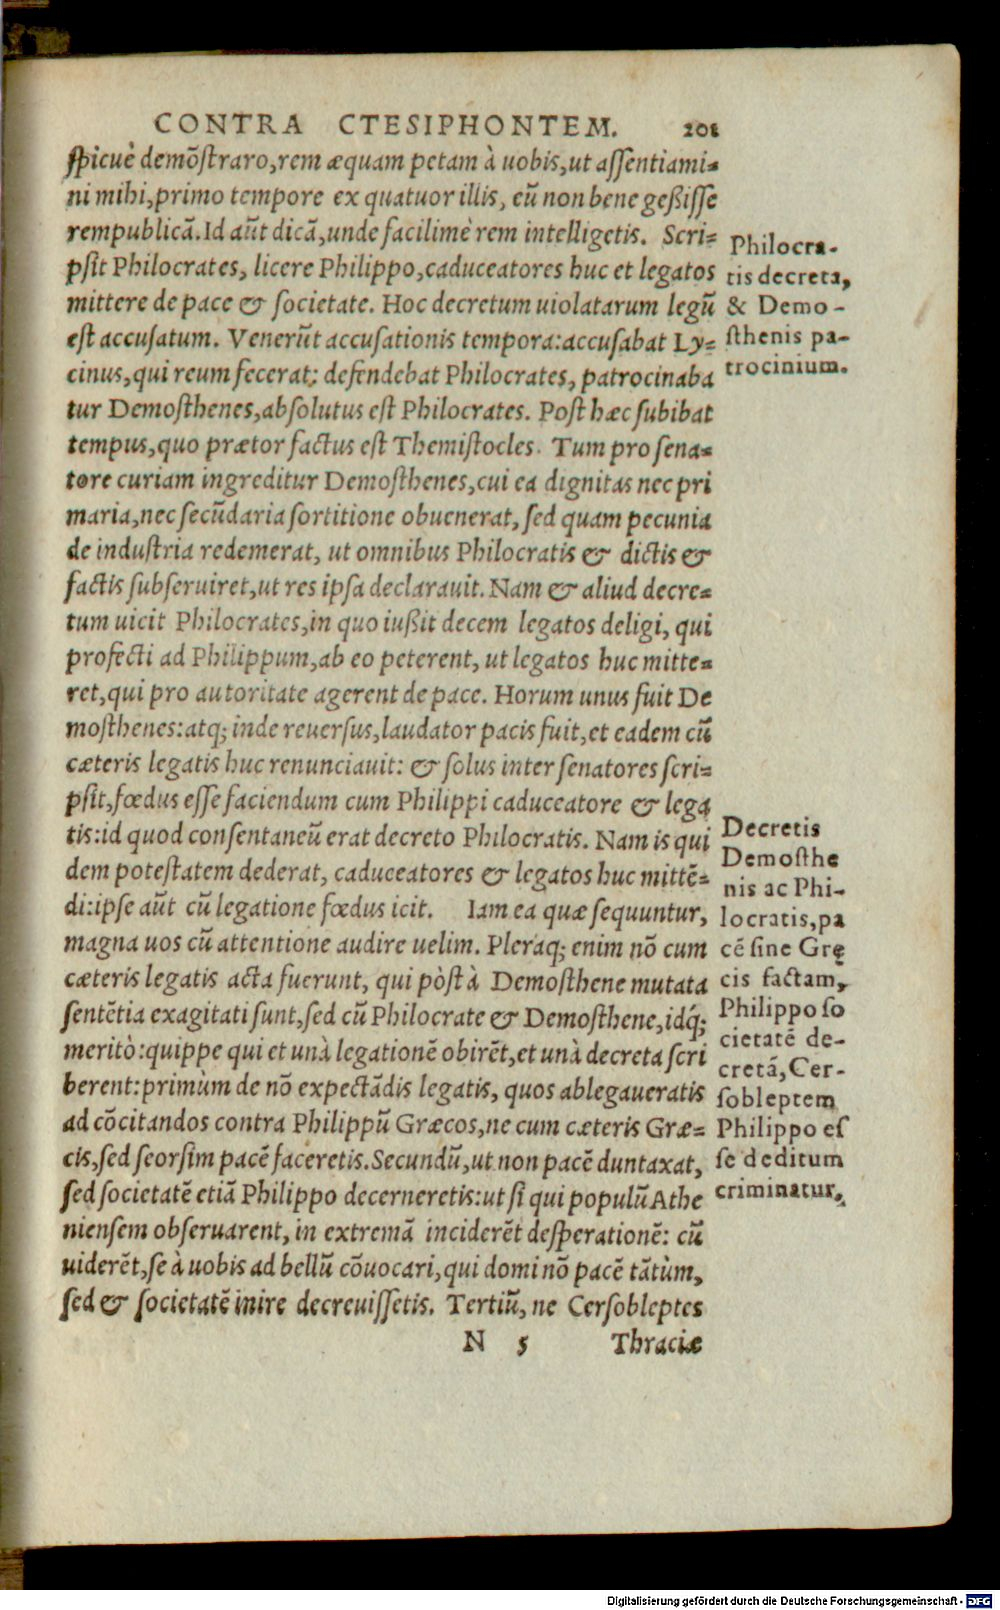 CONTRA CTESIPHONTEM. 201
spicuè demōstraro, rem æquam petam à uobis, ut assentiami-
ni mihi, primo tempore ex quatuor illis, eū non bene geßisse
rempublicā. Id aūt dicā, unde facilimè rem intelligetis. Scri-
psit Philocrates, licere Philippo, caduceatores huc et legatos
mittere de pace & societate. Hoc decretum uiolatarum legū
est accusatum. Venerūt accusationis tempora: accusabat Ly-
cinus, qui reum fecerat: defendebat Philocrates, patrocinaba
tur Demosthenes, absolutus est Philocrates. Post hæc subibat
tempus, quo prætor factus est Themistocles. Tum pro sena-
tore curiam ingreditur Demosthenes, cui ea dignitas nec pri
maria, nec secūdaria sortitione obuenerat, sed quam pecunia
de industria redemerat, ut omnibus Philocratis & dictis &
factis subseruiret, ut res ipsa declarauit. Nam & aliud decre-
tum uicit Philocrates, in quo iußit decem legatos deligi, qui
profecti ad Philippum, ab eo peterent, ut legatos huc mitte-
ret, qui pro autoritate agerent de pace. Horum unus fuit De
mosthenes: atq; inde reuersus, laudator pacis fuit, et eadem cū
cæteris legatis huc renunciauit: & solus inter senatores scri-
psit, fœdus esse faciendum cum Philippi caduceatore & lega
tis: id quod consentaneū erat decreto Philocratis. Nam is qui
dem potestatem dederat, caduceatores & legatos huc mittē-
di: ipse aūt cū legatione fœdus icit. Iam ea quæ sequuntur,
magna uos cū attentione audire uelim. Pleraq; enim nō cum
cæteris legatis acta fuerunt, qui pòst à Demosthene mutata
sentētia exagitati sunt, sed cū Philocrate & Demosthene, idq́;
meritò: quippe qui et unà legationē obirēt, et unà decreta scri
berent: primùm de nō expectādis legatis, quos ablegaueratis
ad cōcitandos contra Philippū Græcos, ne cum cæteris Græ-
cis, sed seorsim pacē faceretis. Secundū, ut non pacē duntaxat,
sed societatē etiā Philippo decerneretis: ut si qui populū Athe
niensem obseruarent, in extremā inciderēt desperationē: cū
uiderēt, se à uobis ad bellū cōuocari, qui domi nō pacē tātùm,
sed & societatē inire decreuissetis. Tertiū, ne Cersobleptes
N 5 Thraciæ
Philocra-
tis decreta,
& Demo-
sthenis pa-
trocinium.
Decretis
Demosthe
nis ac Phi-
locratis, pa
cē sine Grę
cis factam,
Philippo so
cietatē de-
cretā, Cer-
sobleptem
Philippo es
se deditum
criminatur.
Digitalisierung gefördert durch die Deutsche Forschungsgemeinschaft - DFG